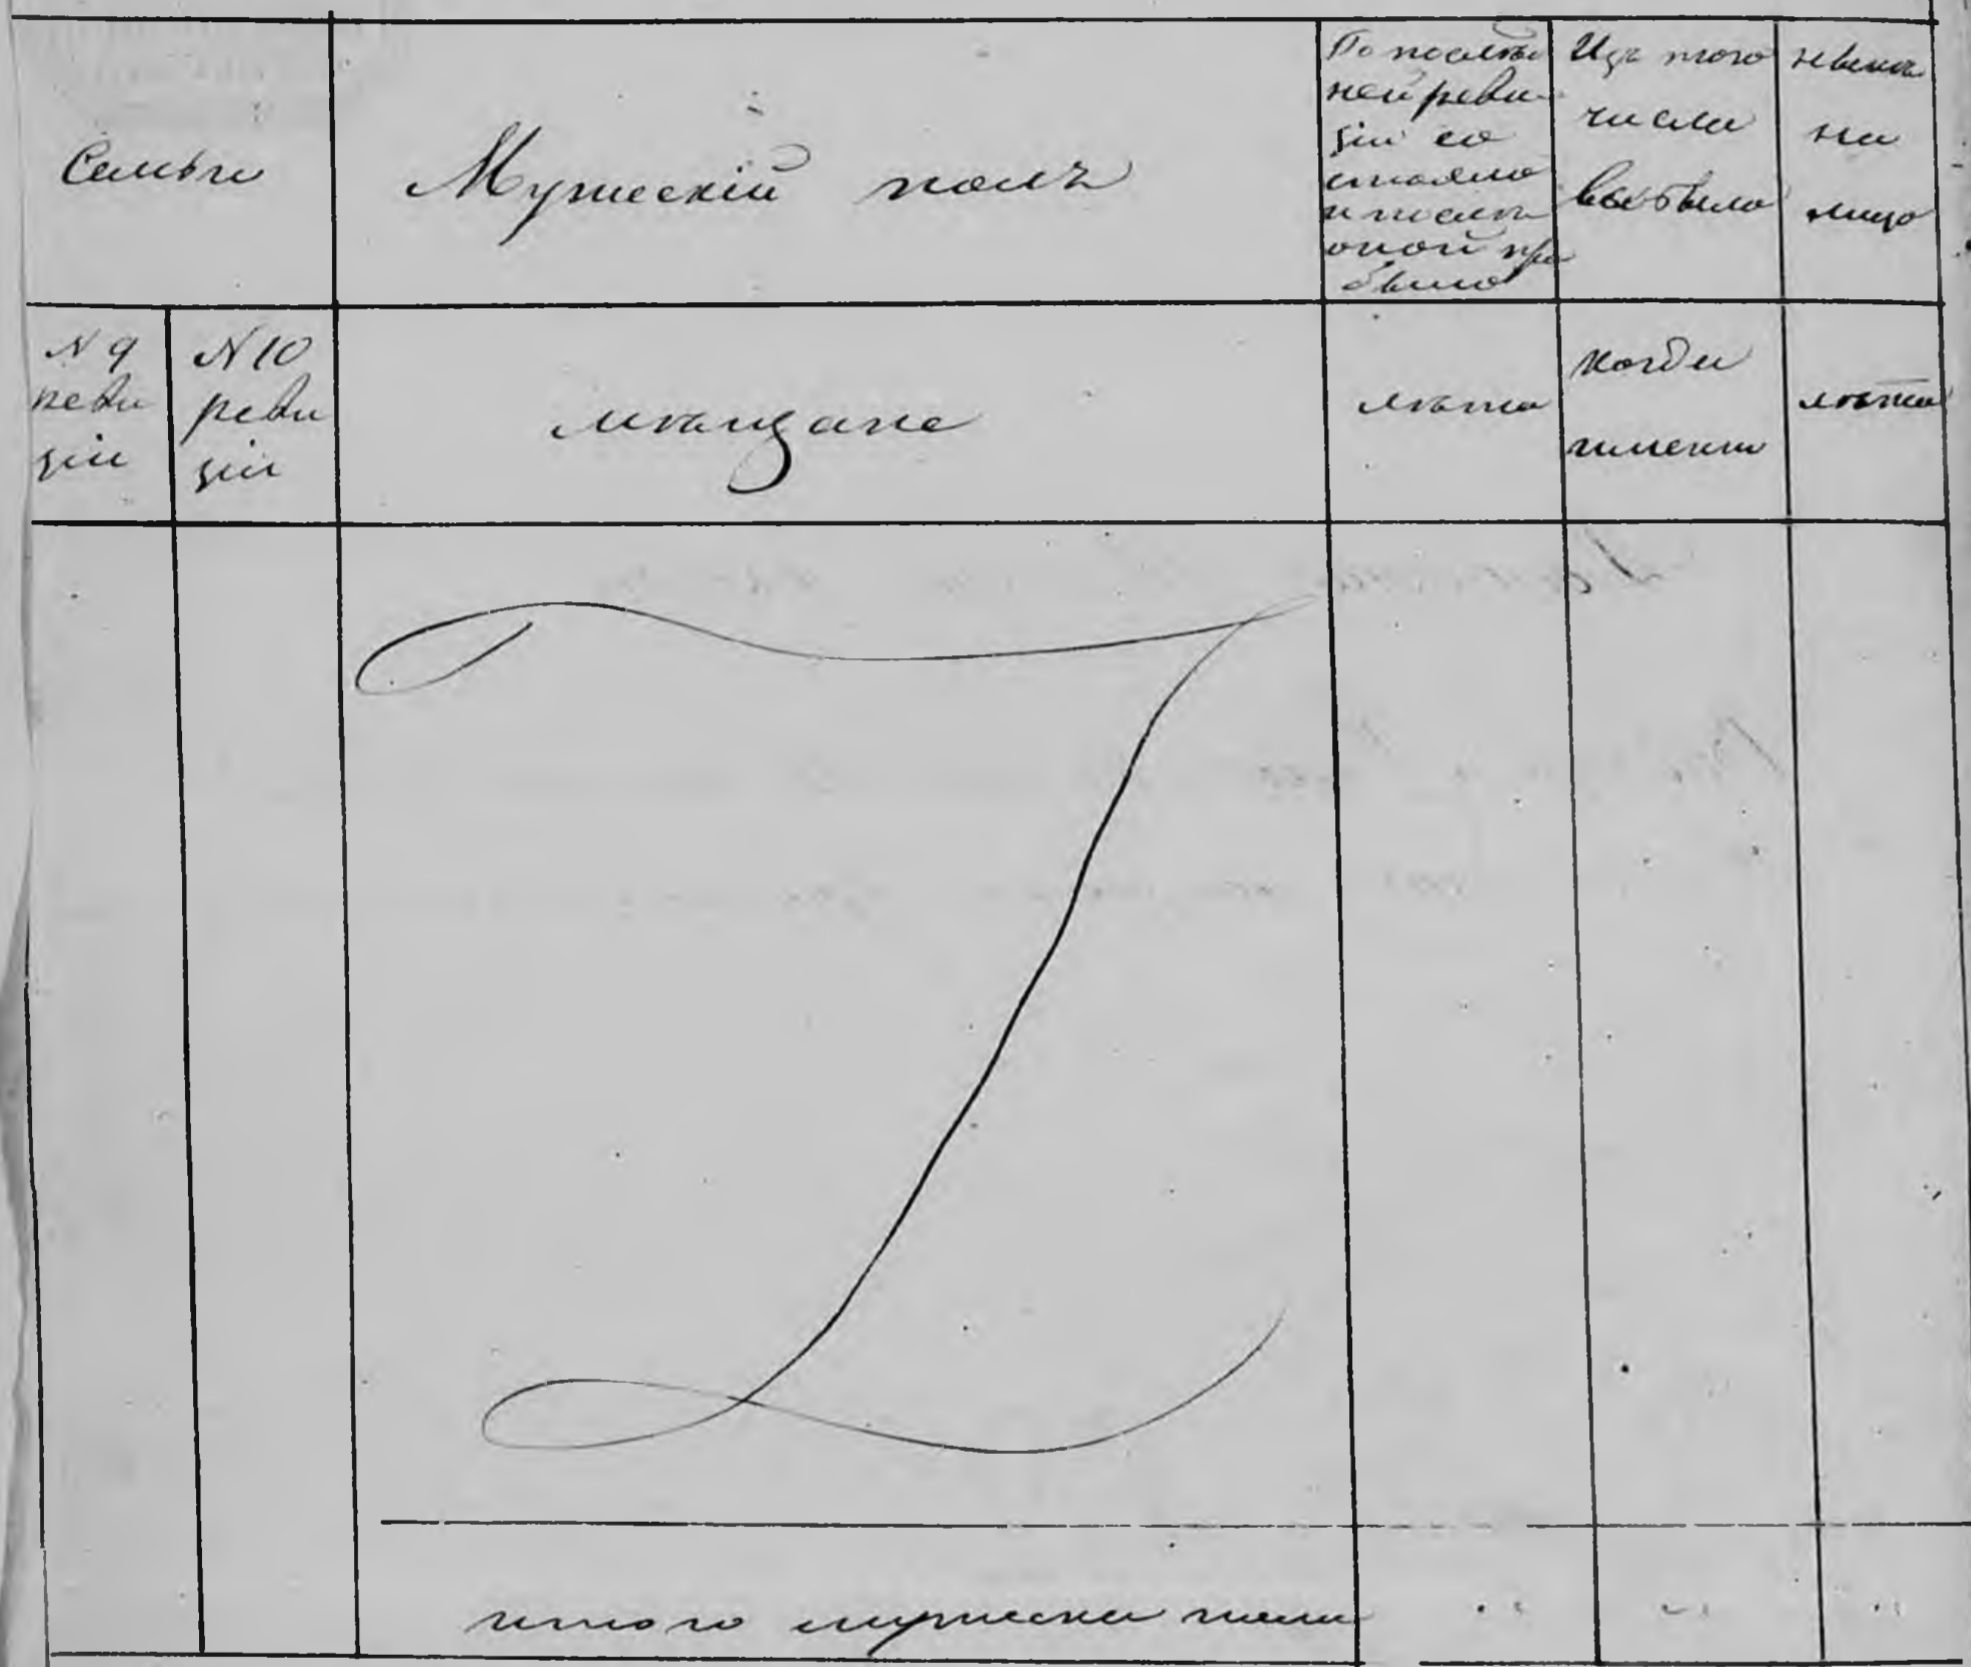 Семьи
Мужескій полъ
По послѣд
ней реви
зіи со
стояло
и послѣ
оной при
было
Изъ того
числа
выбыло
нынѣ
на
лицо
N 9
реви
зіи
N 10
реви
зіи
мѣщане
лѣта
когда
именно
лѣта
итого мужеска пола